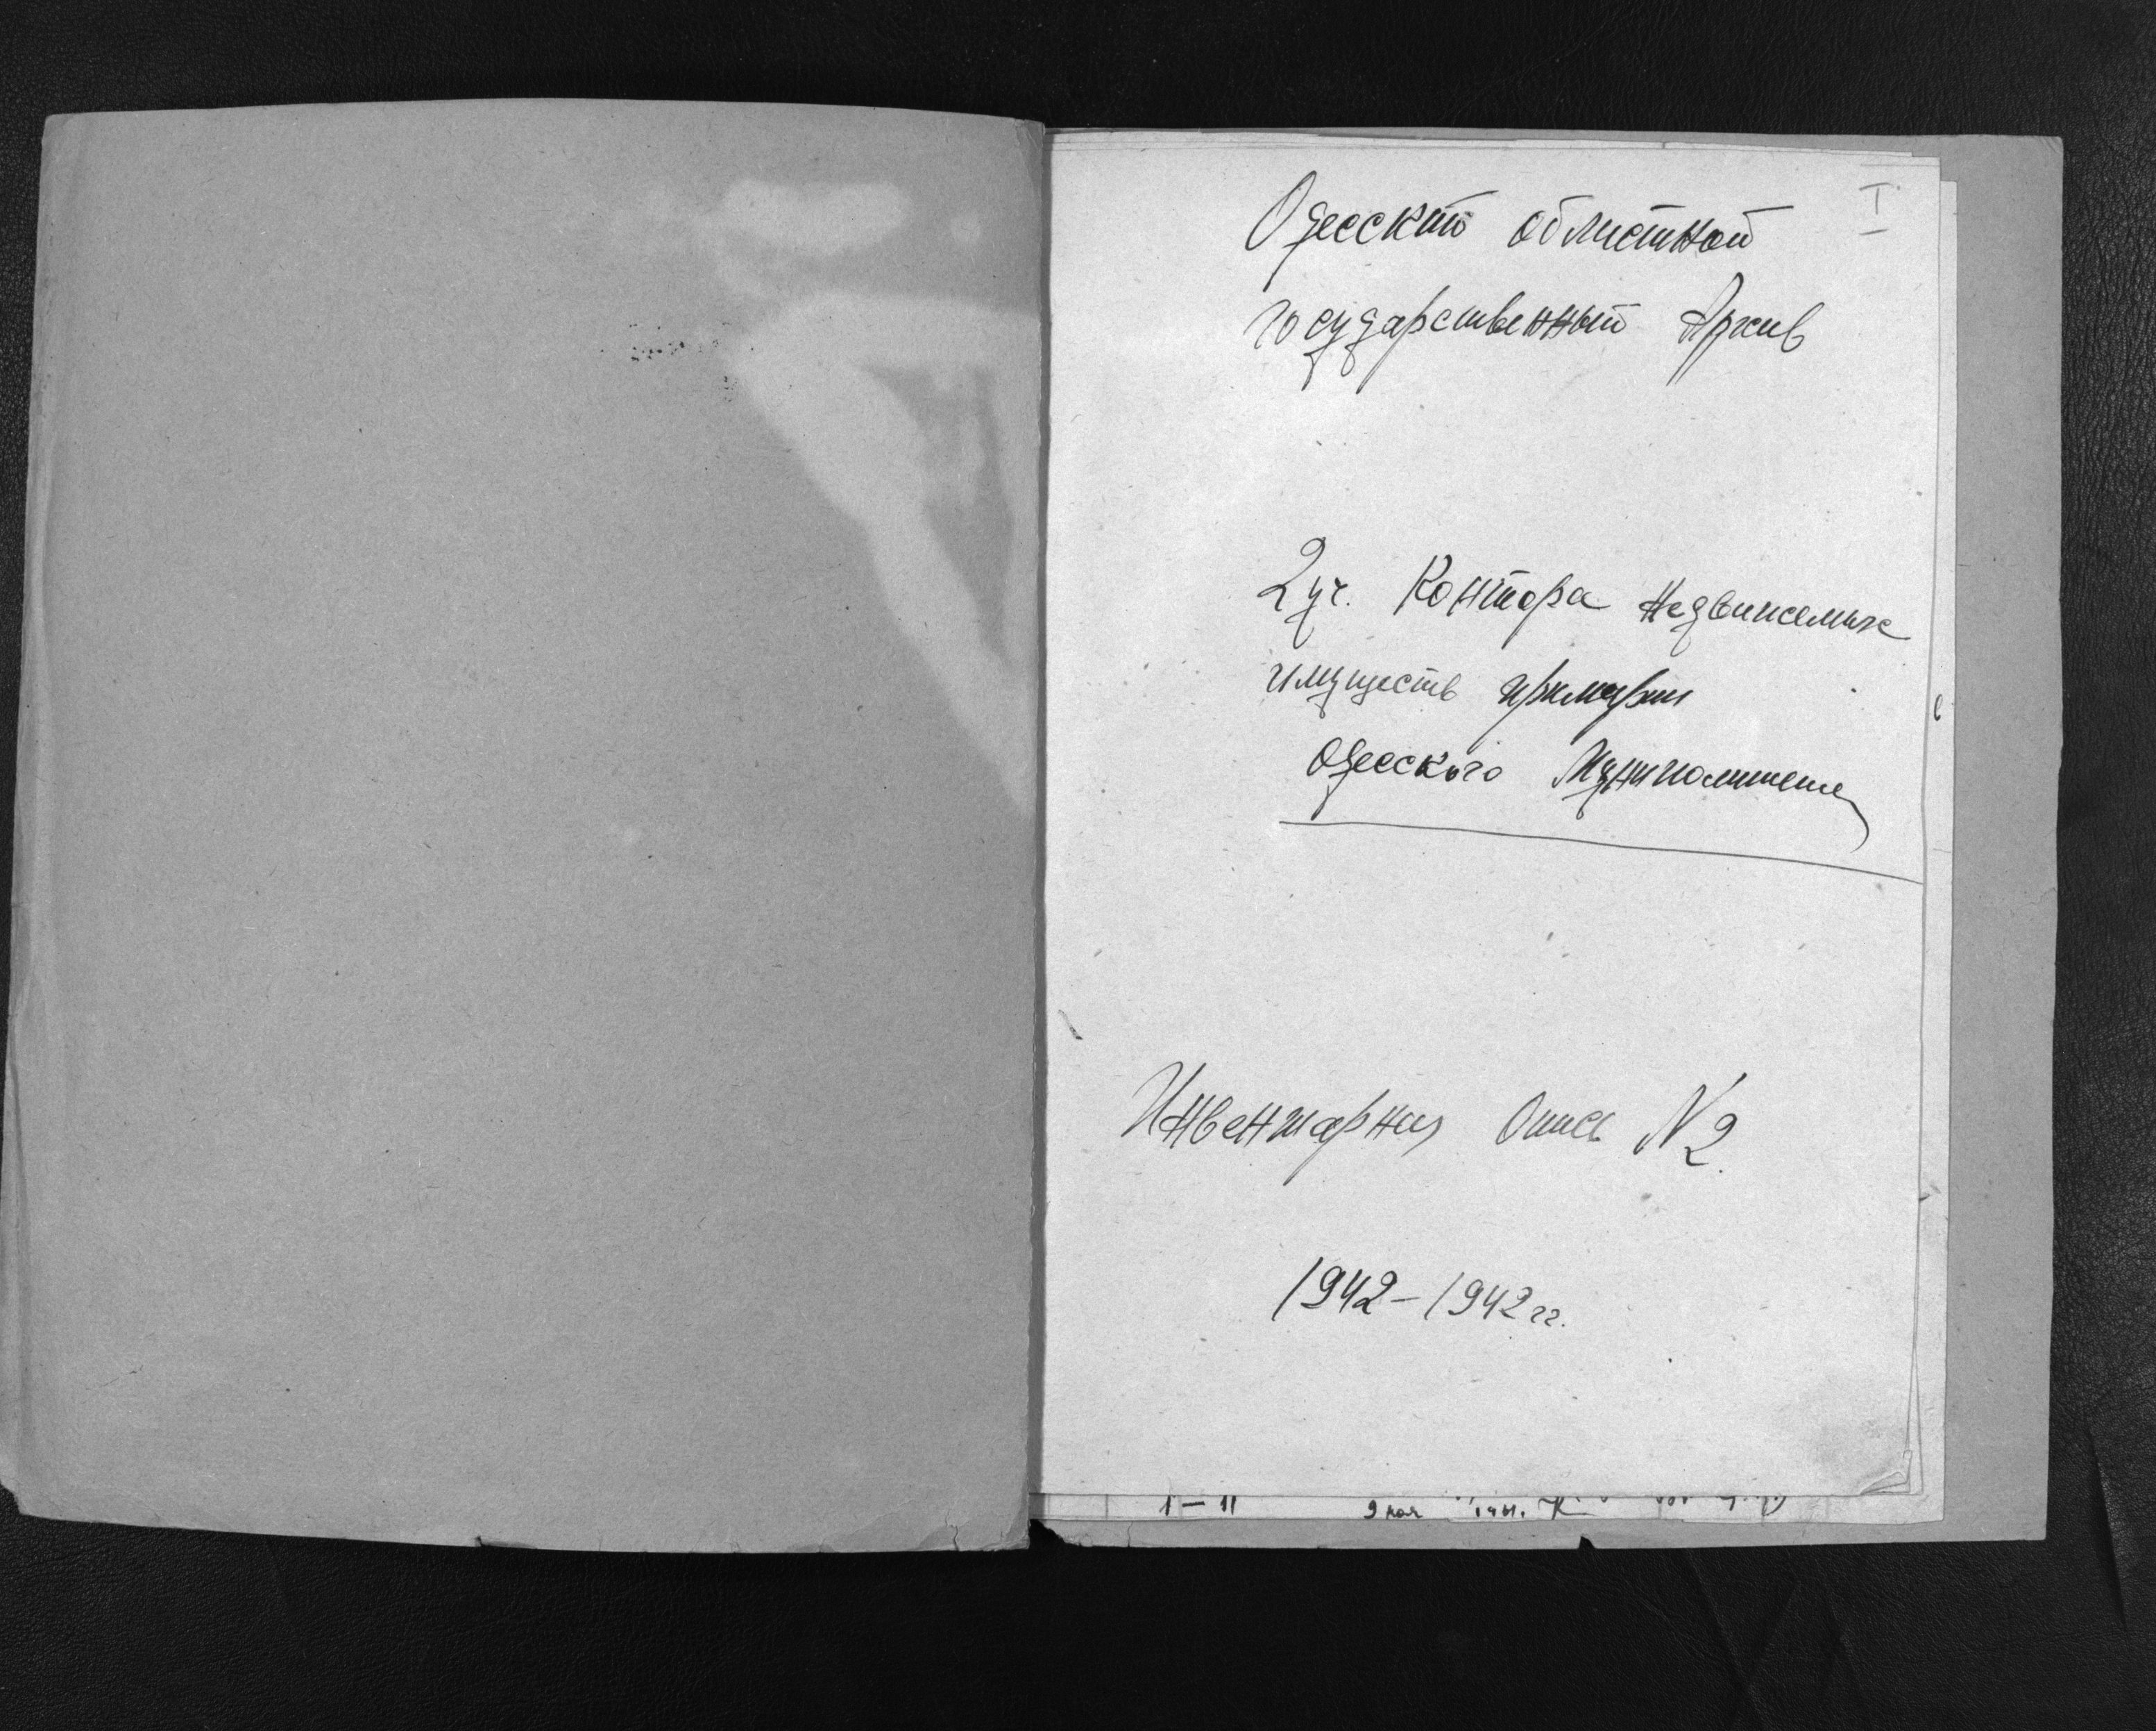 I
Одесский областной
государственный Архив
2 уч. Контора недвижемых
имуществ примарии
Одесского Муниципалитета
Инвентарная Опись № 2.
1942-1942 гг.
1 — 11